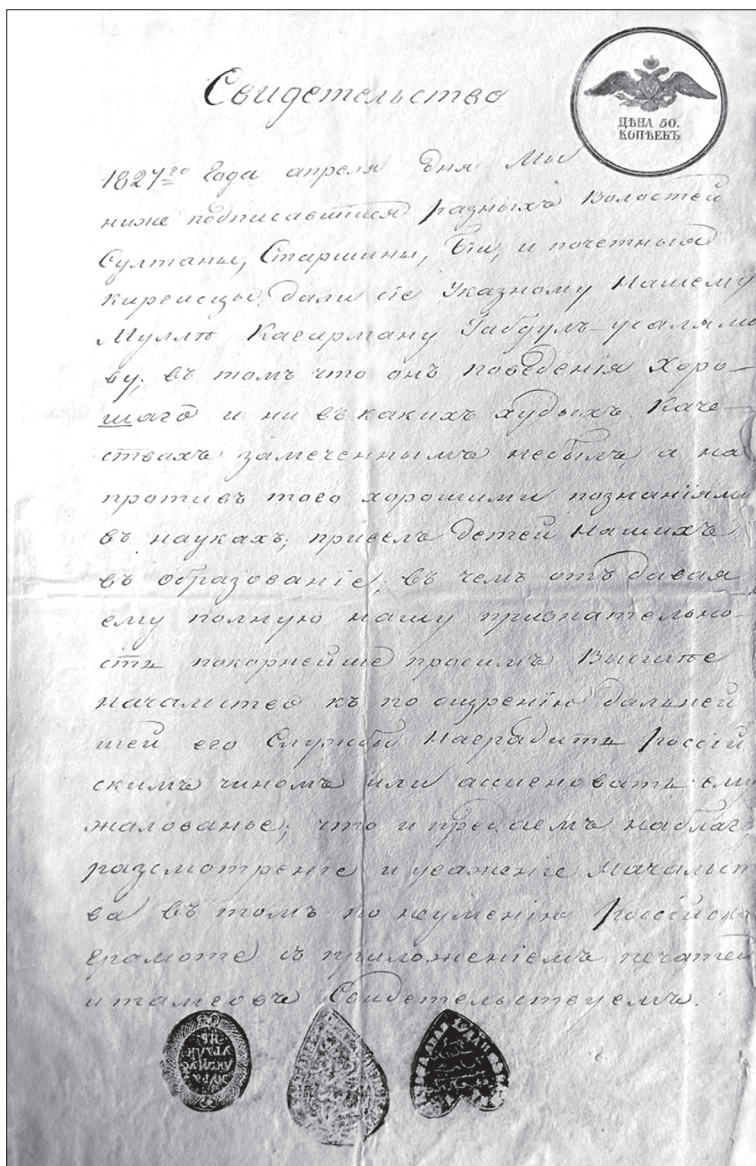 Свидетельство
ЦѢНА 50.
КОПѢЕКЪ
1827го Года апреля дня Мы
ниже подписавшіися разныхъ Волостей
Султаны, Старшины, Біи, и почетныя
киргисцы дали сіе Указному Нашему
Муллѣ Кагарману Габдулъ-усалямо
ву, въ томъ что онъ поведенія Хоро-
шаго и ни въ какихъ худыхъ Каче-
ствахъ замеченнымъ небылъ, а на
противъ того хорошими познаніями
въ наукахъ, привелъ детей Нашихъ
въ образованіе, въ чемъ отъ давая
ему полную нашу признательно-
сть покорнейше просимъ Высшѣе
началство къ по ощренію дальней
шей его Службы Наградить россій
скимъ чиномъ или ассигновать ему
жалованье; что и предаемъ наблаго
разсмотреніе и уваженіе Начальст
ва въ томъ по неумению россійской
грамоте съ приложеніемъ печатей
и тамговъ Свидетельствуемъ.